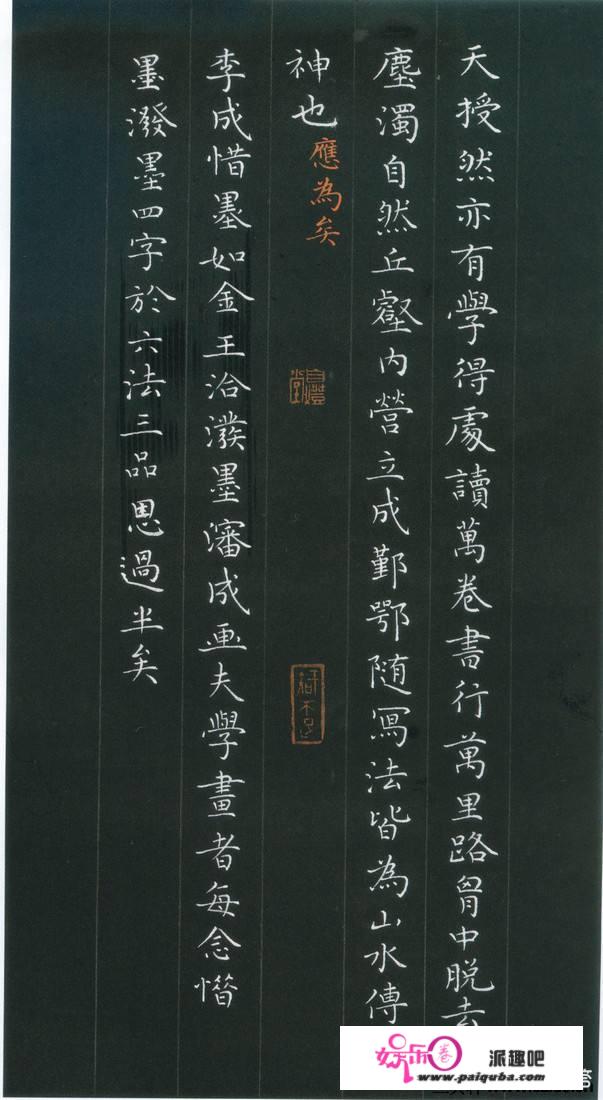 天授然亦有學得處讀萬卷書行萬里路胷中脱去
塵濁自然丘壑内營立成鄞鄂随寫法皆為山水傳
神也應為矣
李成惜墨如金王洽潑墨瀋成画夫學畫者每念惜
墨潑墨四字於六法三品思過半矣
娱乐卷
派趣吧
www.paiquba.com